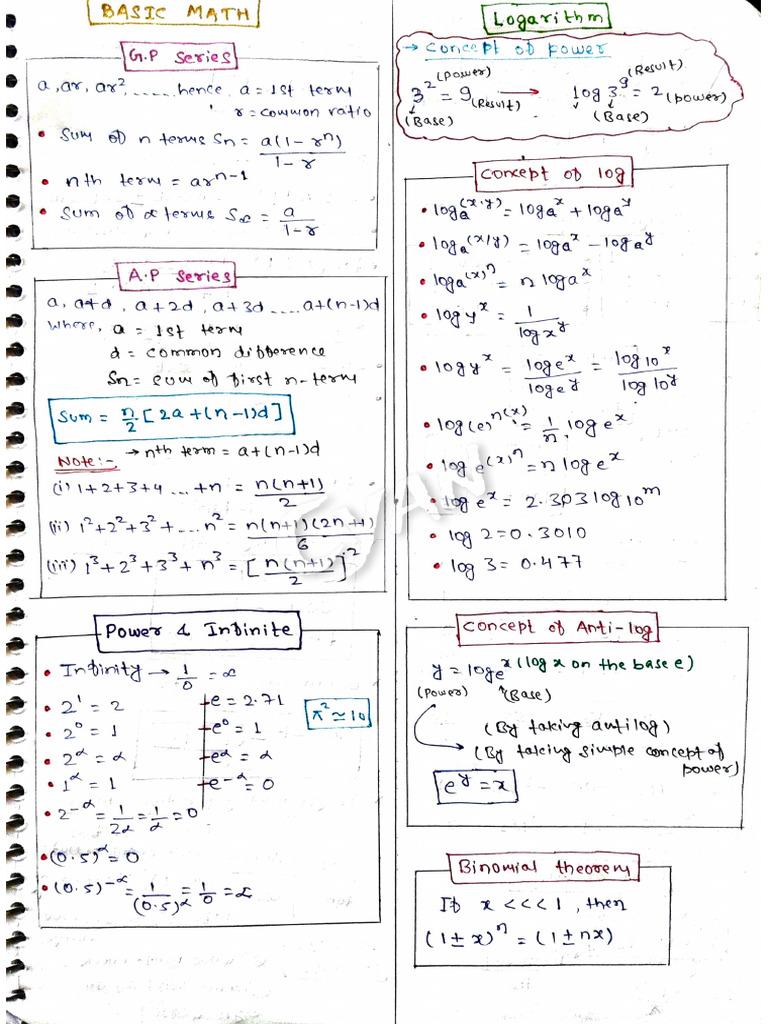 BASIC MATH
G.P Series
a, ar, ar² ...... hence, a = 1st term
r = common ratio
• Sum of n terms Sn = a(1 - rⁿ) / 1 - r
• nth term = arⁿ⁻¹
• Sum of ∝ terms S∝ = a / 1 - r
A.P Series
a, a+d, a+2d, a+3d ..... a+(n-1)d
Where, a = 1st term
d = common difference
Sn = sum of first n-term
Sum = n/2 [2a + (n-1)d]
Note:- → nth term = a+(n-1)d
(i) 1+2+3+4 ... +n = n(n+1) / 2
(ii) 1²+2²+3²+... n² = n(n+1)(2n+1) / 6
(iii) 1³+2³+3³+n³ = [n(n+1) / 2]²
Power & Infinite
• Infinity → 1/0 = ∝
• 2¹ = 2
• 2⁰ = 1
• 2^∝ = ∝
• 1^∝ = 1
• 2^-∝ = 1/2∝ = 1/∝ = 0
• (0.5)^∝ = 0
• (0.5)^-∝ = 1/(0.5)^∝ = 1/0 = ∝
e = 2.71
e⁰ = 1
e^∝ = ∝
e^-∝ = 0
π² ≃ 10
Logarithm
→ Concept of power
3² (power) = 9 (Result) → log 3^9 (Result) = 2 (power)
(Base) (Base)
Concept of log
• log a^(x·y) = log a^x + log a^y
• log a^(x/y) = log a^x - log a^y
• log a^(x)^n = n log a^x
• log y^x = 1 / log x^y
• log y^x = log e^x / log e^y = log 10^x / log 10^y
• log(e)^n(x) = 1/n . log e^x
• log e^(x)^n = n log e^x
• log e^x = 2.303 log 10^m
• log 2 = 0.3010
• log 3 = 0.477
GYAN
Concept of Anti-log
y = log e^x (log x on the base e)
(Power) (Base)
(By taking antilog)
(By taking simple concept of
power)
e^y = x
Binomial theorem
If x <<< 1, then
(1 ± x)^n = (1 ± nx)